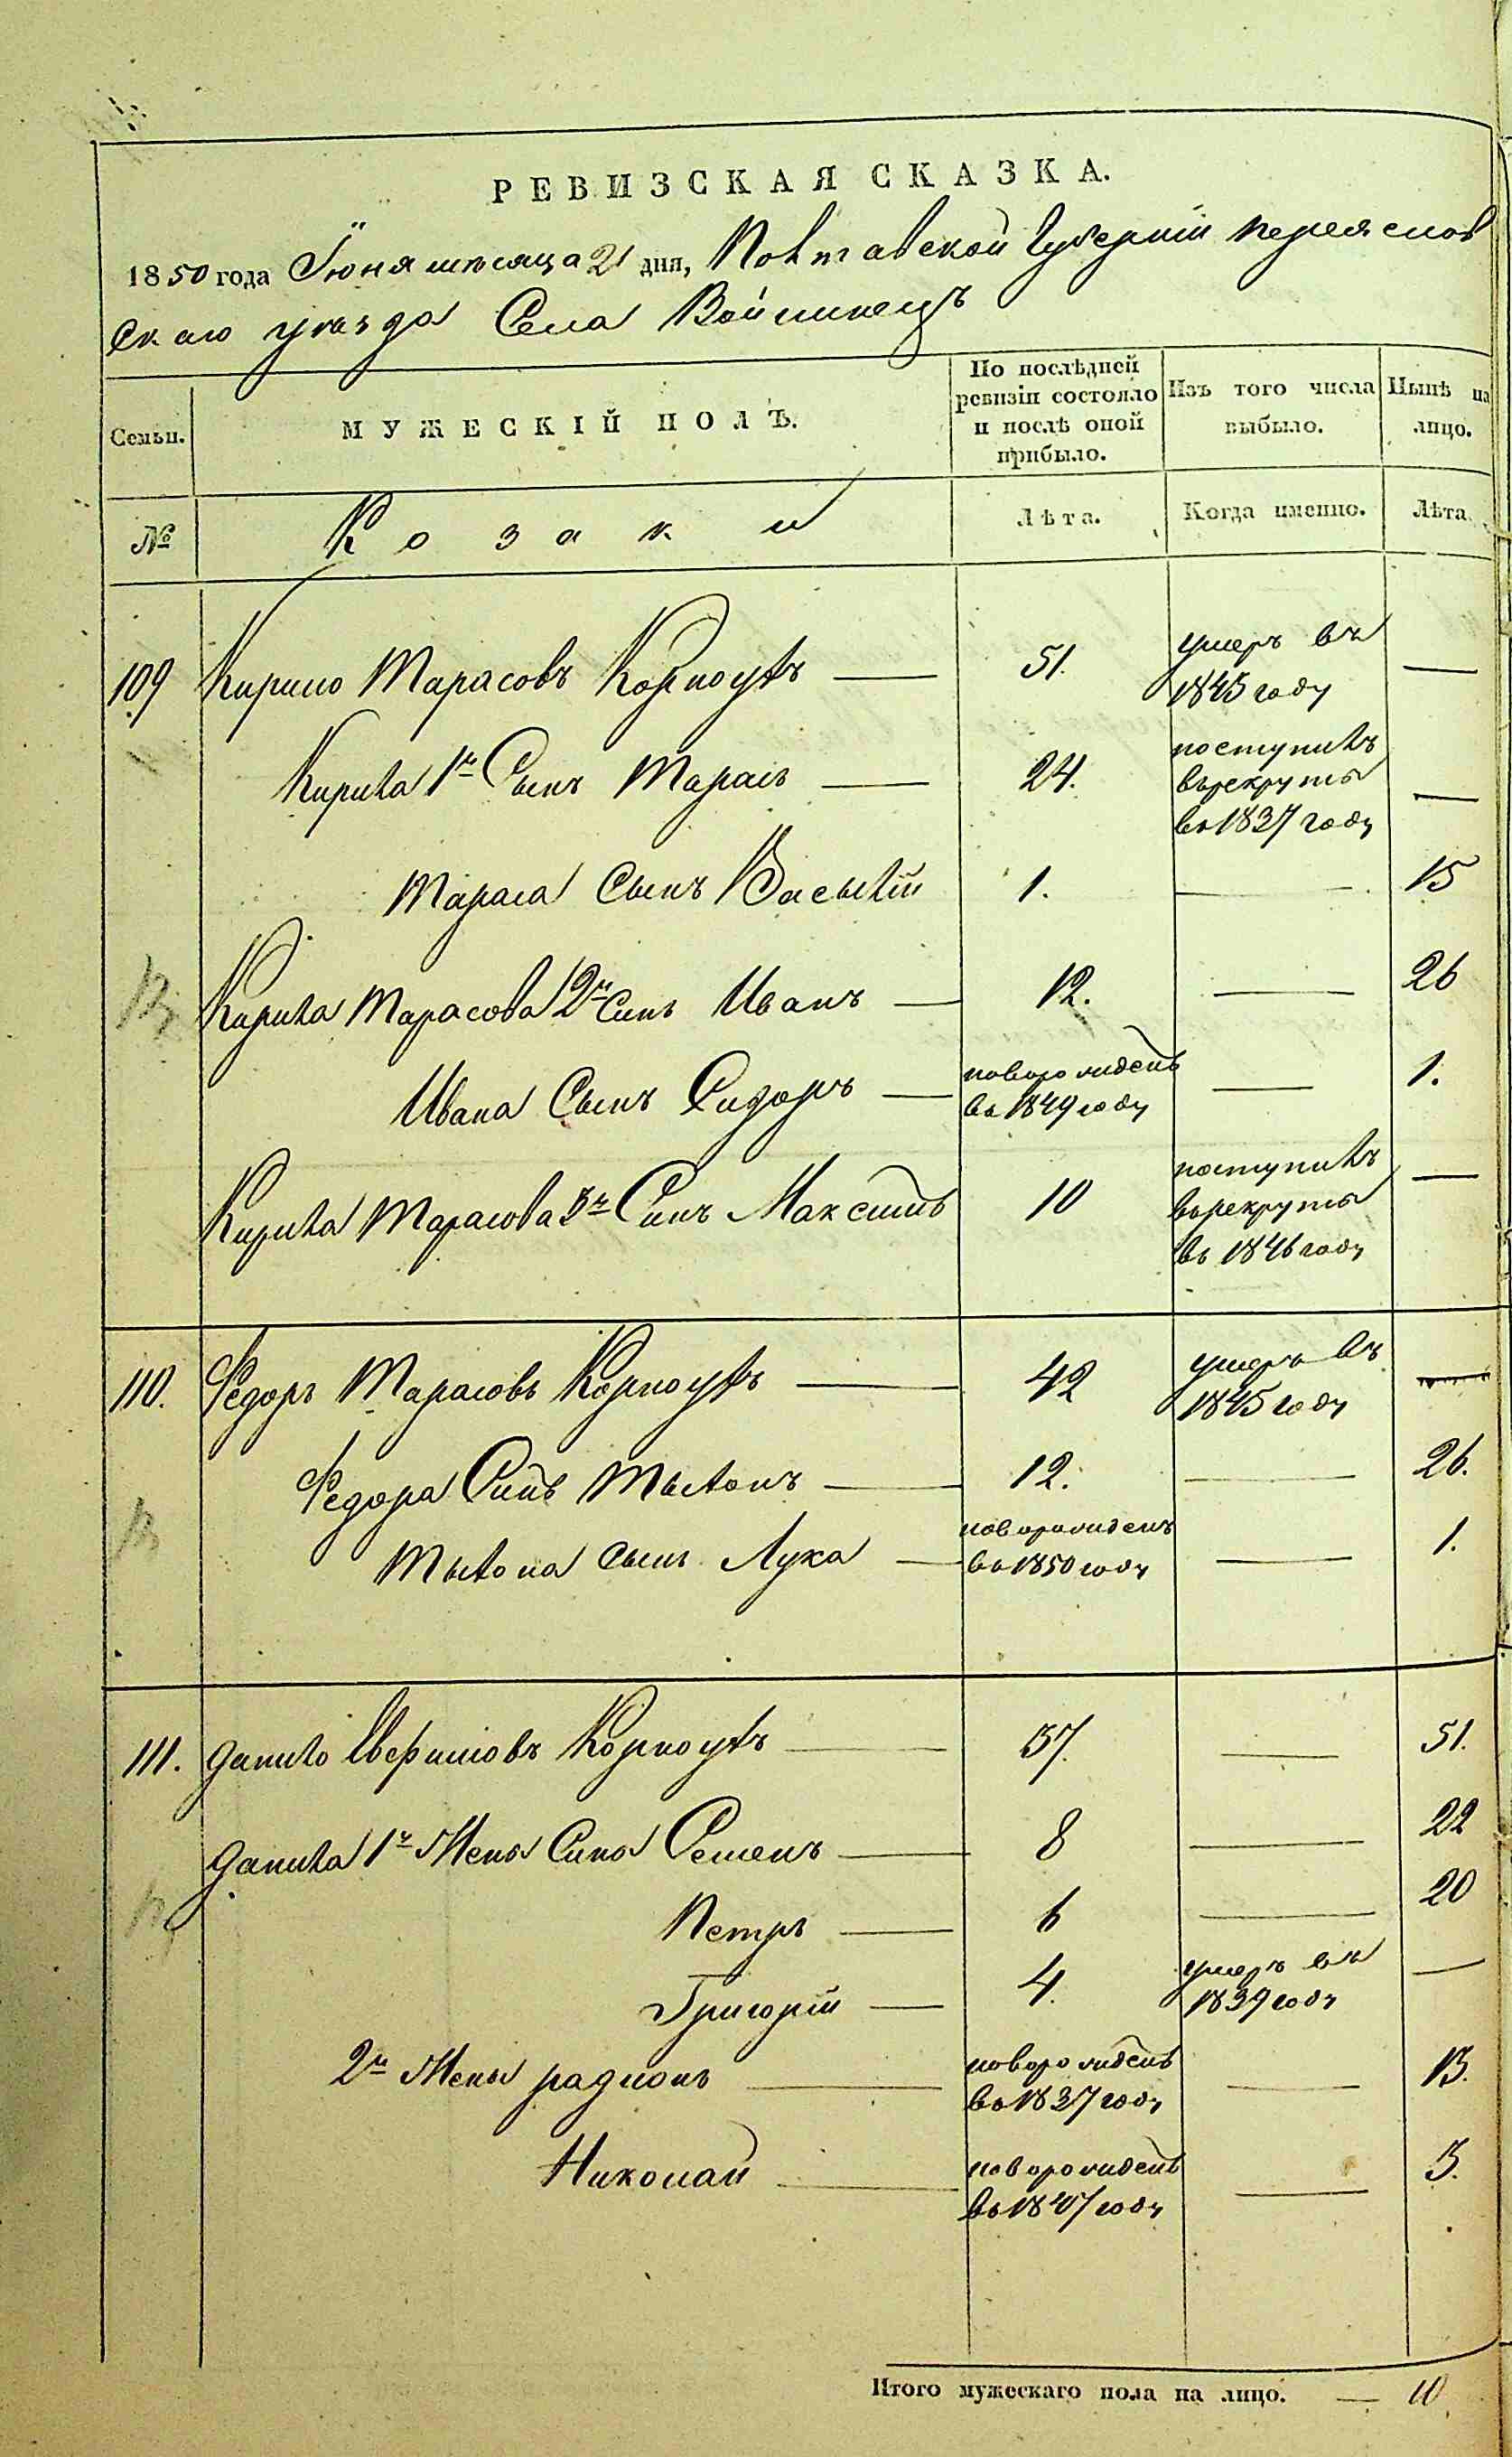 РЕВИЗСКАЯ СКАЗКА.
1850 года Іюня мѣсяца 21 дня, Полтавской Губерніи Переяслов
скаго уѣзда Села Войтинецъ
Семьи. МУЖЕСКІЙ ПОЛЪ. По послѣдней ревизіи состояло и послѣ оной прибыло. Изъ того числа выбыло. Нынѣ на лицо.
№ Козаки Лѣта. Когда именно. Лѣта.
109 Кирило Тарасовъ Корноухъ — 51. умеръ въ 1845 году —
Кирила 1й Сынъ Тарасъ — 24. поступилъ върекруты въ 1837 году —
Тараса Сынъ Василій 1. — 15
Кирила Тарасова 2й Синъ Иванъ — 12. — 26
Ивана Сынъ Сидоръ — новорожденъ въ 1849 году — 1.
Кирила Тарасова 3й Синъ Максимъ 10 поступилъ върекруты въ 1846 году —
110. Федоръ Тарасовъ Корноухъ — 42 умеръ въ 1845 году —
Федора Синъ — 12. — 26.
Сынъ Лука — новорожденъ въ 1850 году — 1.
111. Данило Корноухъ — 37. — 51.
Данила 1й Жены Сины Семенъ — 8 — 22
Петръ — 6 — 20
Григорій — 4. умеръ въ 1839 году —
2й Жены радионъ — новорожденъ въ 1837 году — 13.
Николай — новорожденъ въ 1847 году — 3.
Итого мужескаго пола на лицо. — 10